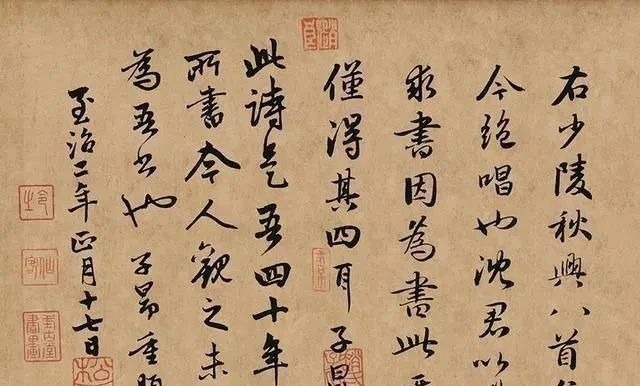 右少陵秋興八首
今絕唱也沈君以
求書因為書此
僅得其四耳子昂
此詩是吾四十年
所書今人觀之未
為吾書也子昂重題
至治二年正月十七日